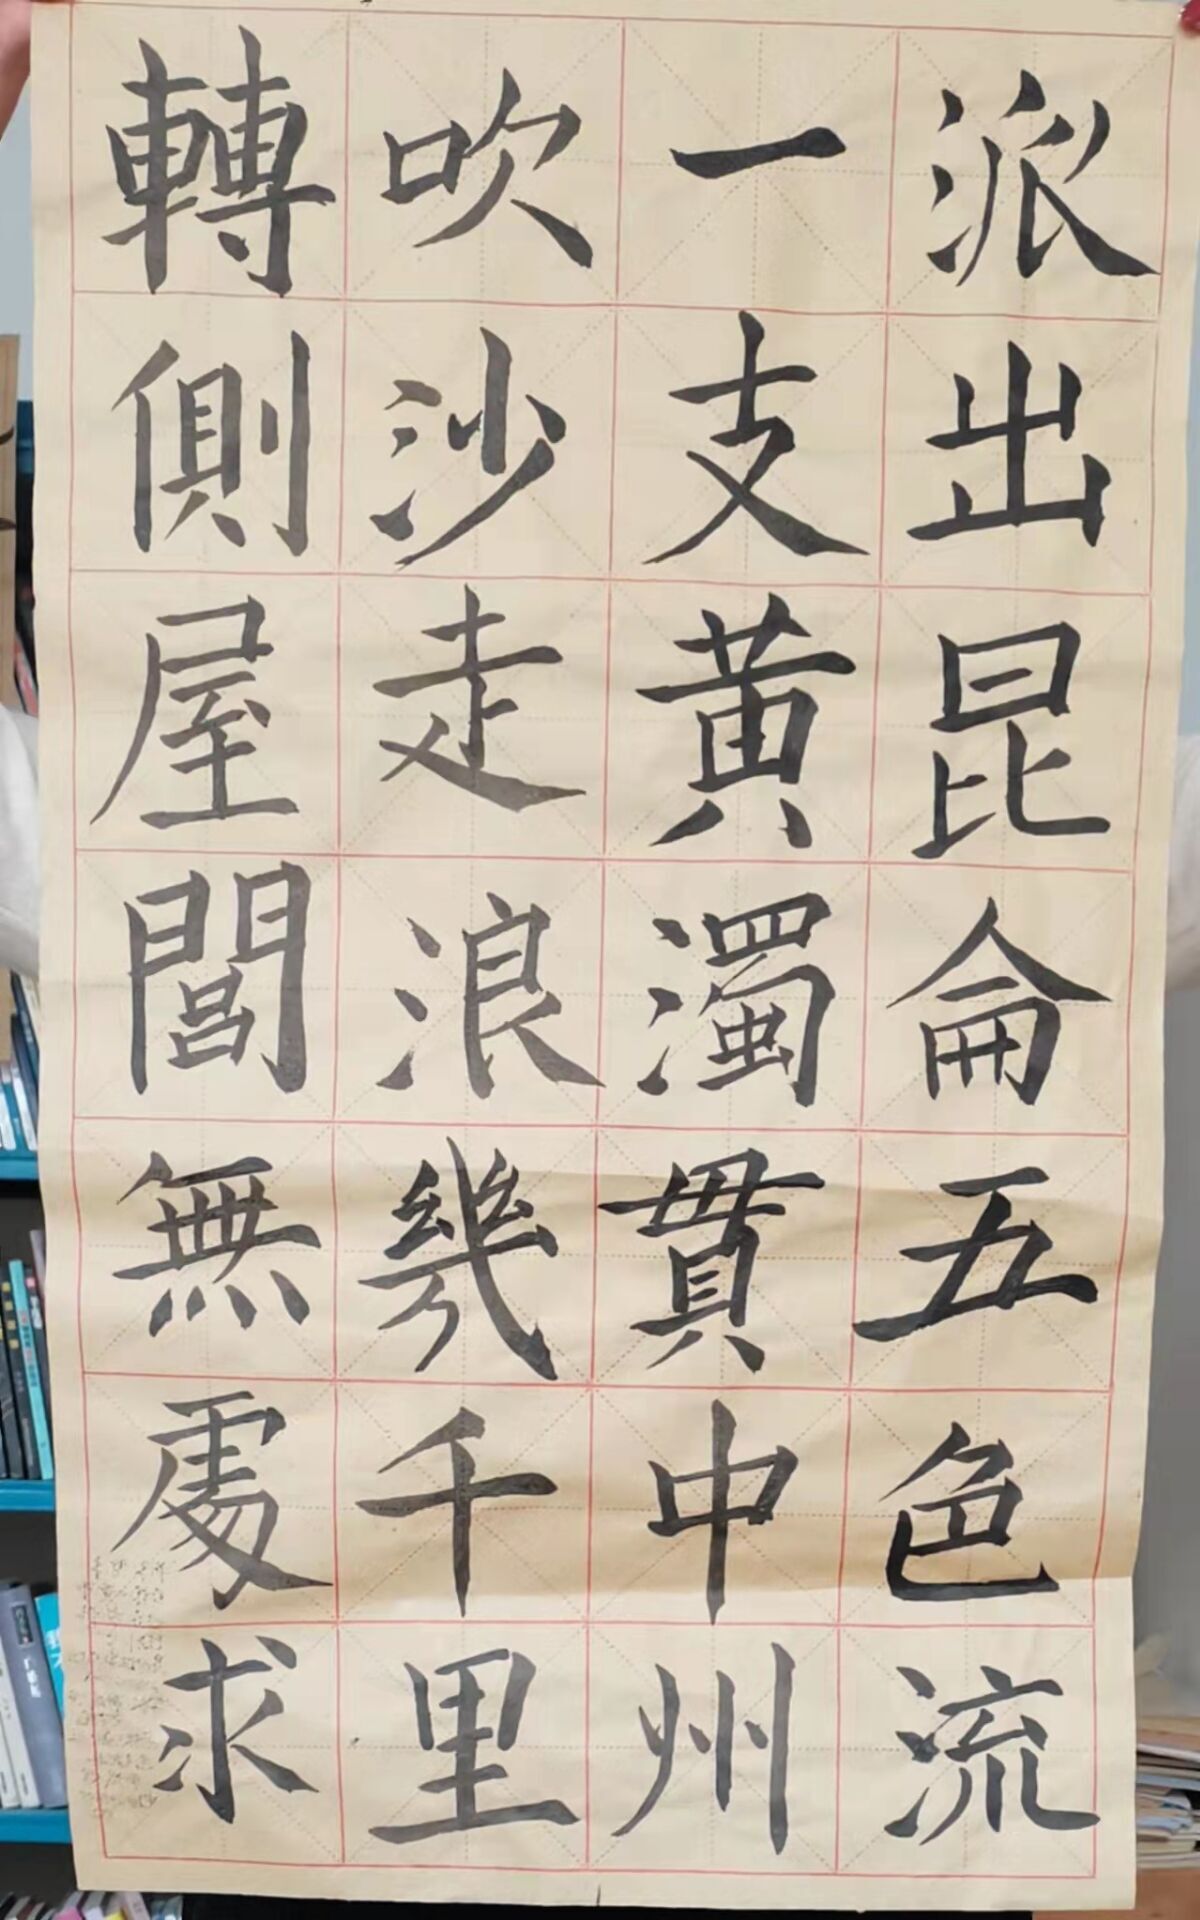 派出昆侖五色流
一支黄濁貫中州
吹沙走浪幾千里
轉側屋閭無處求